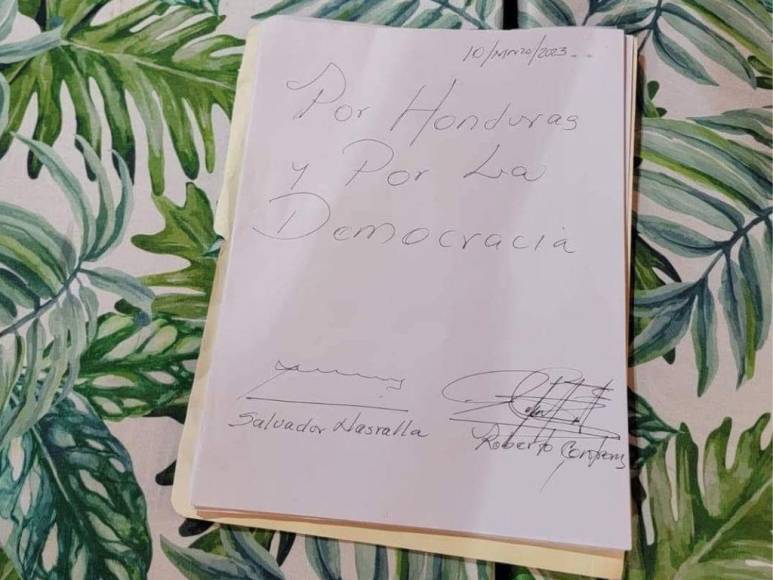 10/Marzo/2023...
Por Honduras
y Por La
Democracia
Salvador Nasralla
Roberto Contreras